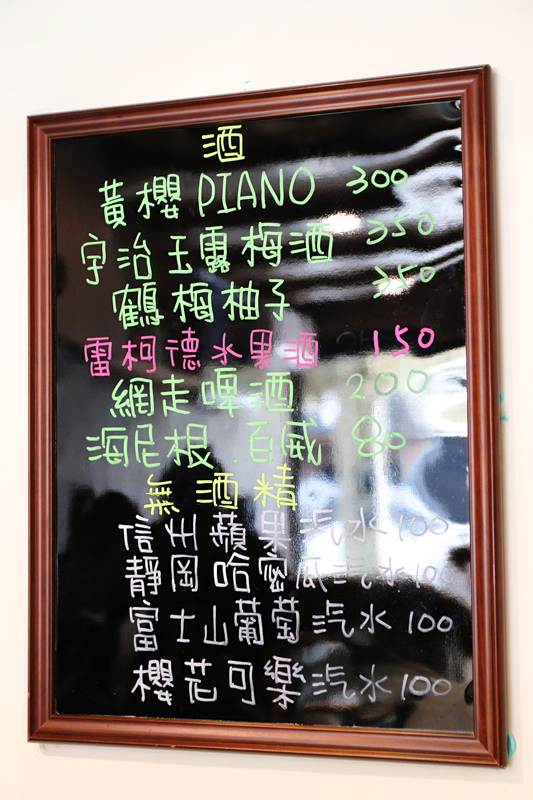 酒
黃櫻 PIANO 300
宇治玉露梅酒 350
鶴梅柚子 350
雷柯德水果酒 150
網走啤酒 200
海尼根.百威 80
無酒精
信州蘋果汽水 100
靜岡哈密瓜汽水 100
富士山葡萄汽水 100
櫻花可樂汽水 100